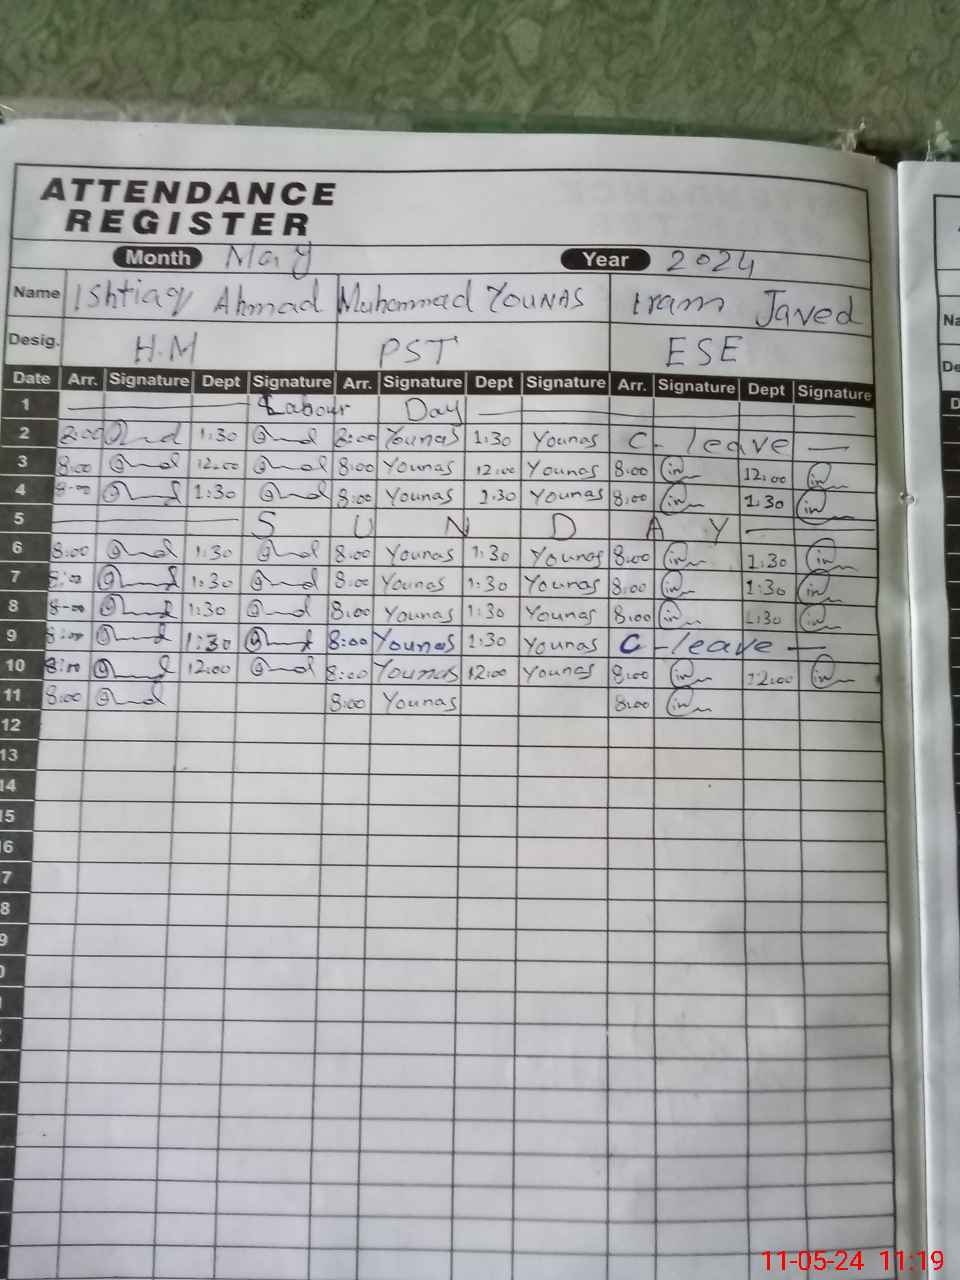 ATTENDANCE
REGISTER
Month May Year 2024
Name Ishtiaq Ahmad Muhammad YOUNAS Iram Javed
Desig. H.M PST ESE
Date Arr. Signature Dept Signature Arr. Signature Dept Signature Arr. Signature Dept Signature
1 Labour Day
2 8:00 1:30 8:00 Younas 1:30 Younas C-leave
3 8:00 12:00 8:00 Younas 12:00 Younas 8:00 12:00
4 8:00 1:30 8:00 Younas 1:30 Younas 8:00 1:30
5 S U N D A Y
6 8:00 1:30 8:00 Younas 1:30 Younas 8:00 1:30
7 8:00 1:30 8:00 Younas 1:30 Younas 8:00 1:30
8 8:00 1:30 8:00 Younas 1:30 Younas 8:00 1:30
9 8:00 1:30 8:00 Younas 1:30 Younas C-leave
10 8:00 12:00 8:00 Younas 12:00 Younas 8:00 12:00
11 8:00 8:00 Younas 8:00
12
13
14
15
6
7
8
9
11-05-24 11:19